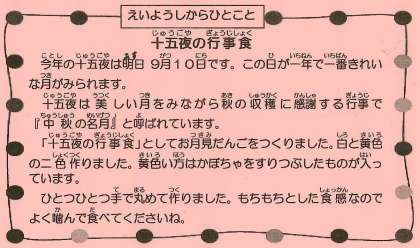 えいようしからひとこと
十五夜の行事食
今年の十五夜は明日 9月10日です。この日が一年で一番きれい
な月がみられます。
十五夜は美しい月をみながら秋の収穫に感謝する行事で
『中秋の名月』と呼ばれています。
「十五夜の行事食」としてお月見だんごをつくりました。白と黄色
の二色作りました。黄色い方はかぼちゃをすりつぶしたものが入っ
ています。
ひとつひとつ手で丸めて作りました。もちもちとした食感なので
よく噛んで食べてくださいね。